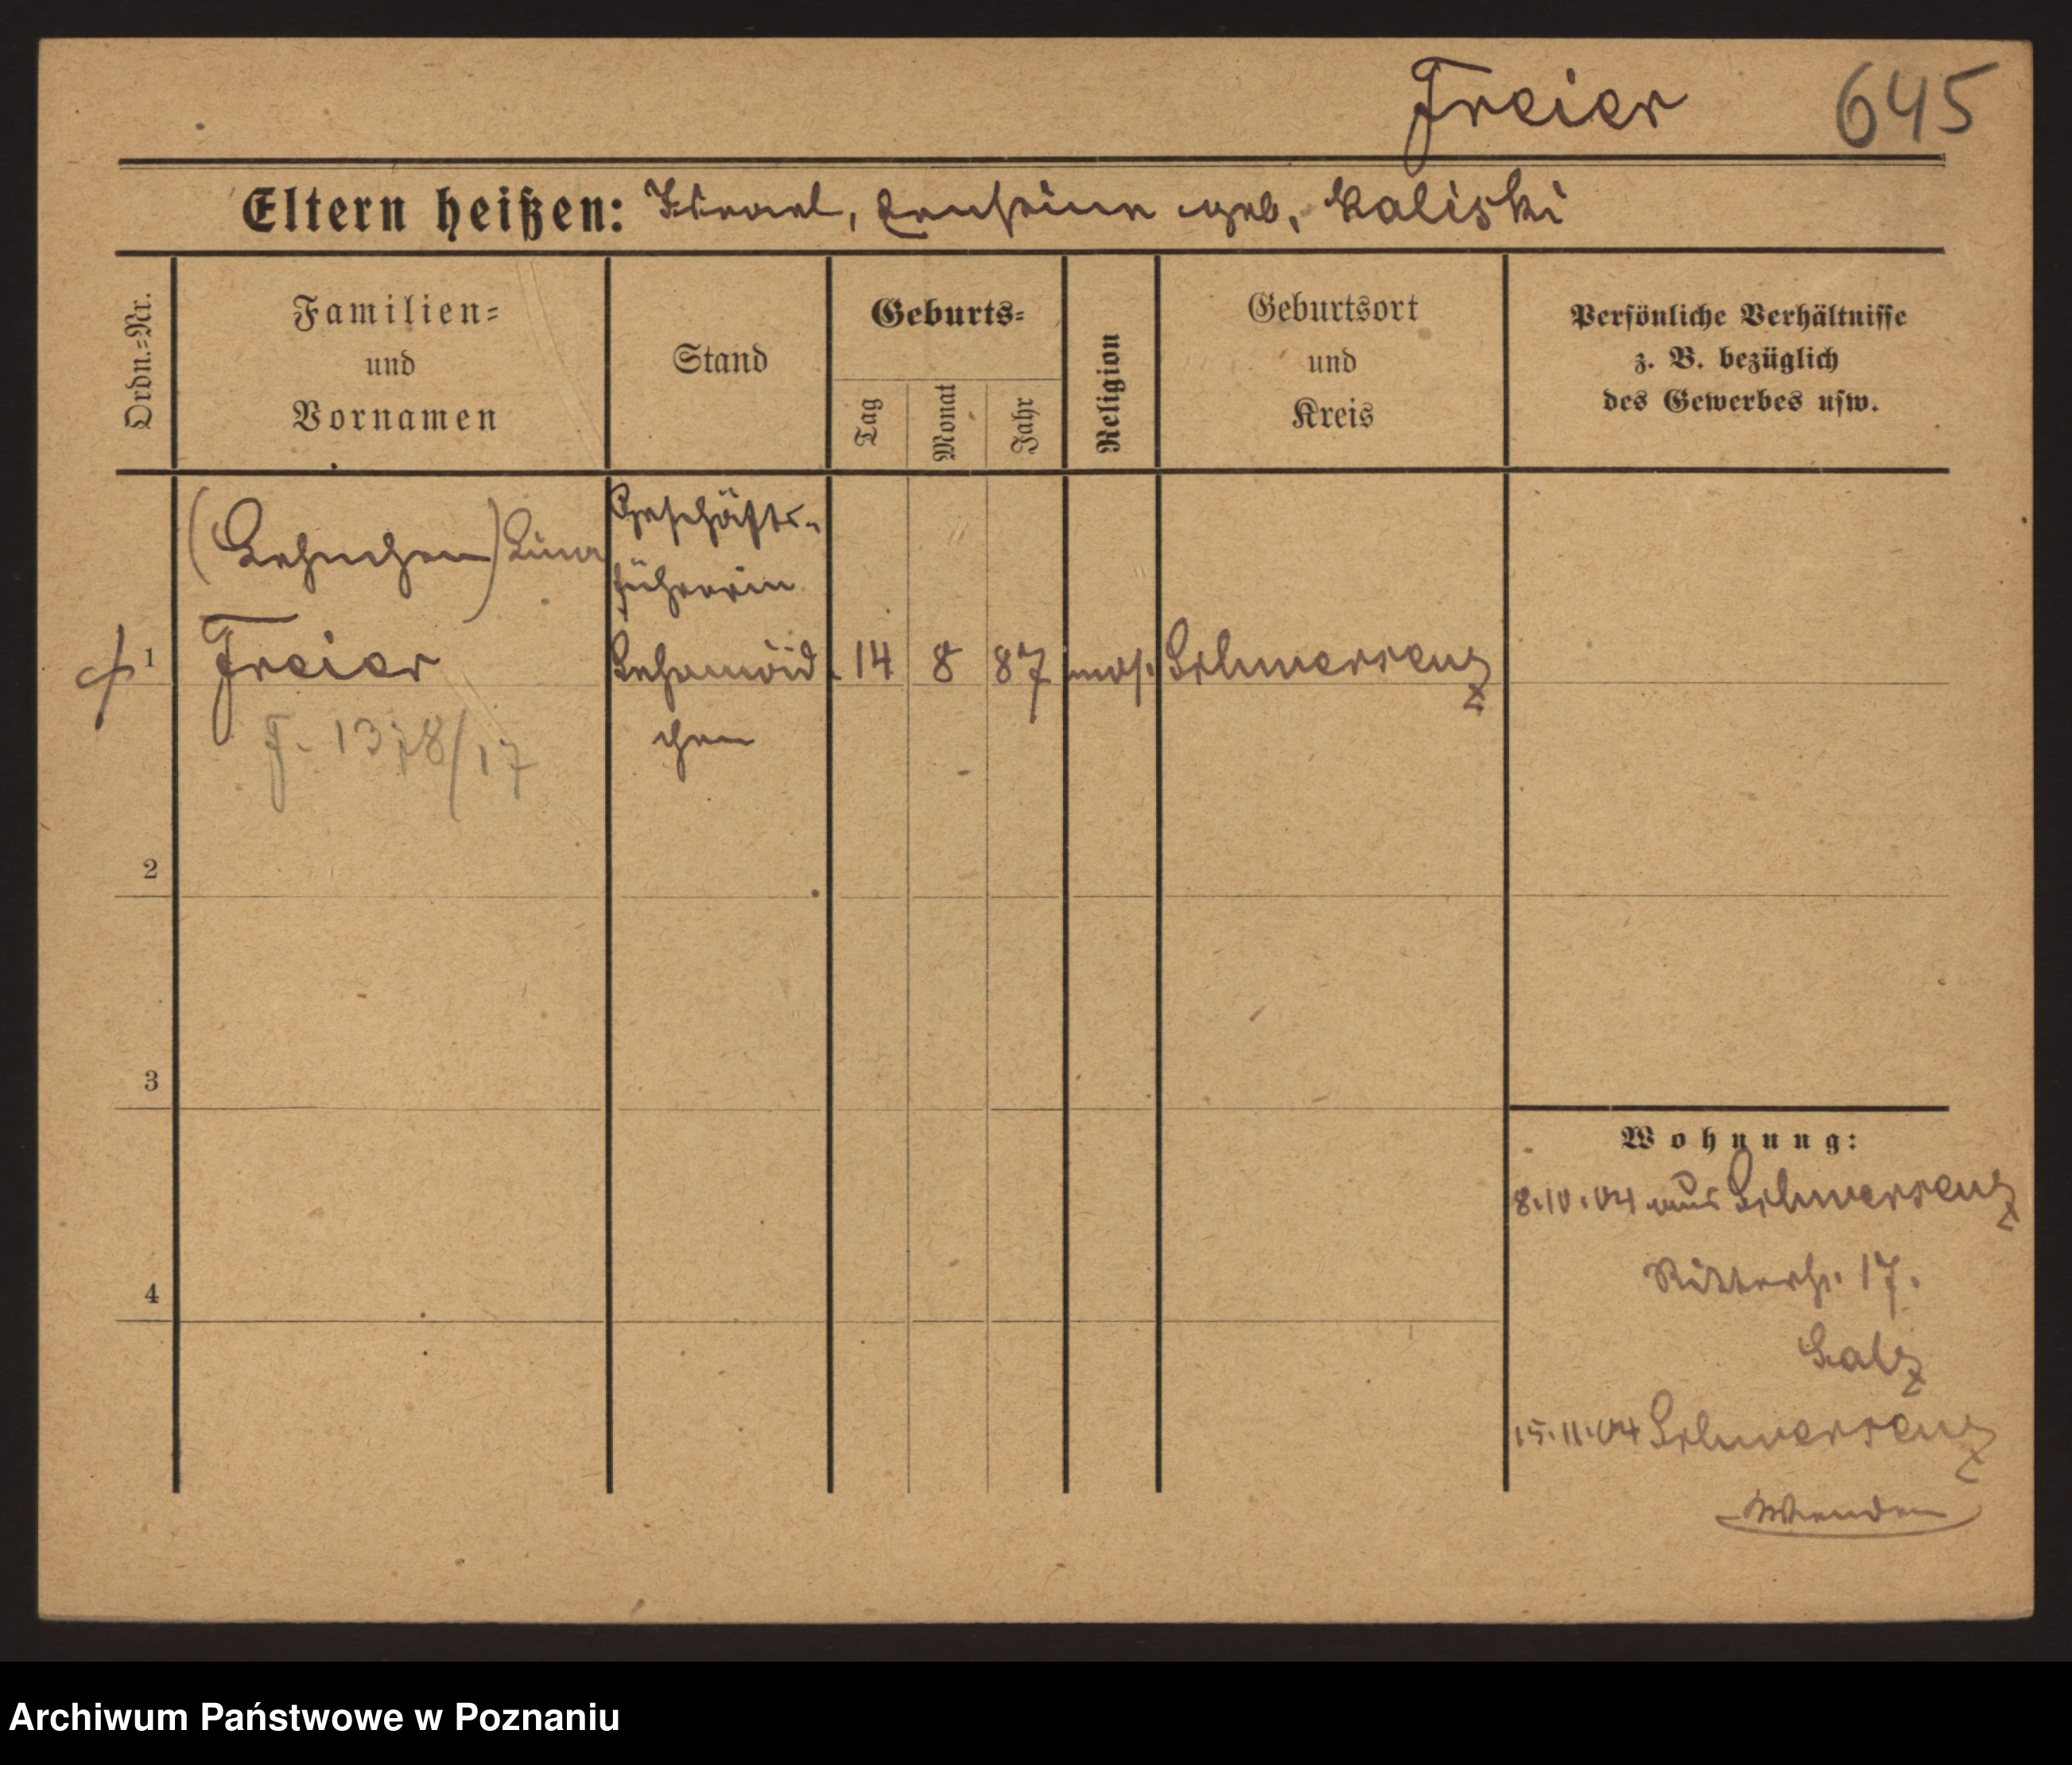 Freier 645
Eltern heißen: Israel, geb. Kaliski
Ordn.=Nr.
Familien=
und
Vornamen
Stand
Geburts=
Tag
Monat
Jahr
Religion
Geburtsort
und
Kreis
Persönliche Verhältnisse
z. B. bezüglich
des Gewerbes usw.
(Lehnchen) Lina
Geschäfts-
führerin
1 Freier Lehrmäd- 14 8 87 mos. Schwersenz
chen
F. 1378/17
2
3
4
Wohnung:
8.10.04 aus Schwersenz
Ritterstr. 17.
Salz
15.11.04 Schwersenz
Wenden
Archiwum Państwowe w Poznaniu